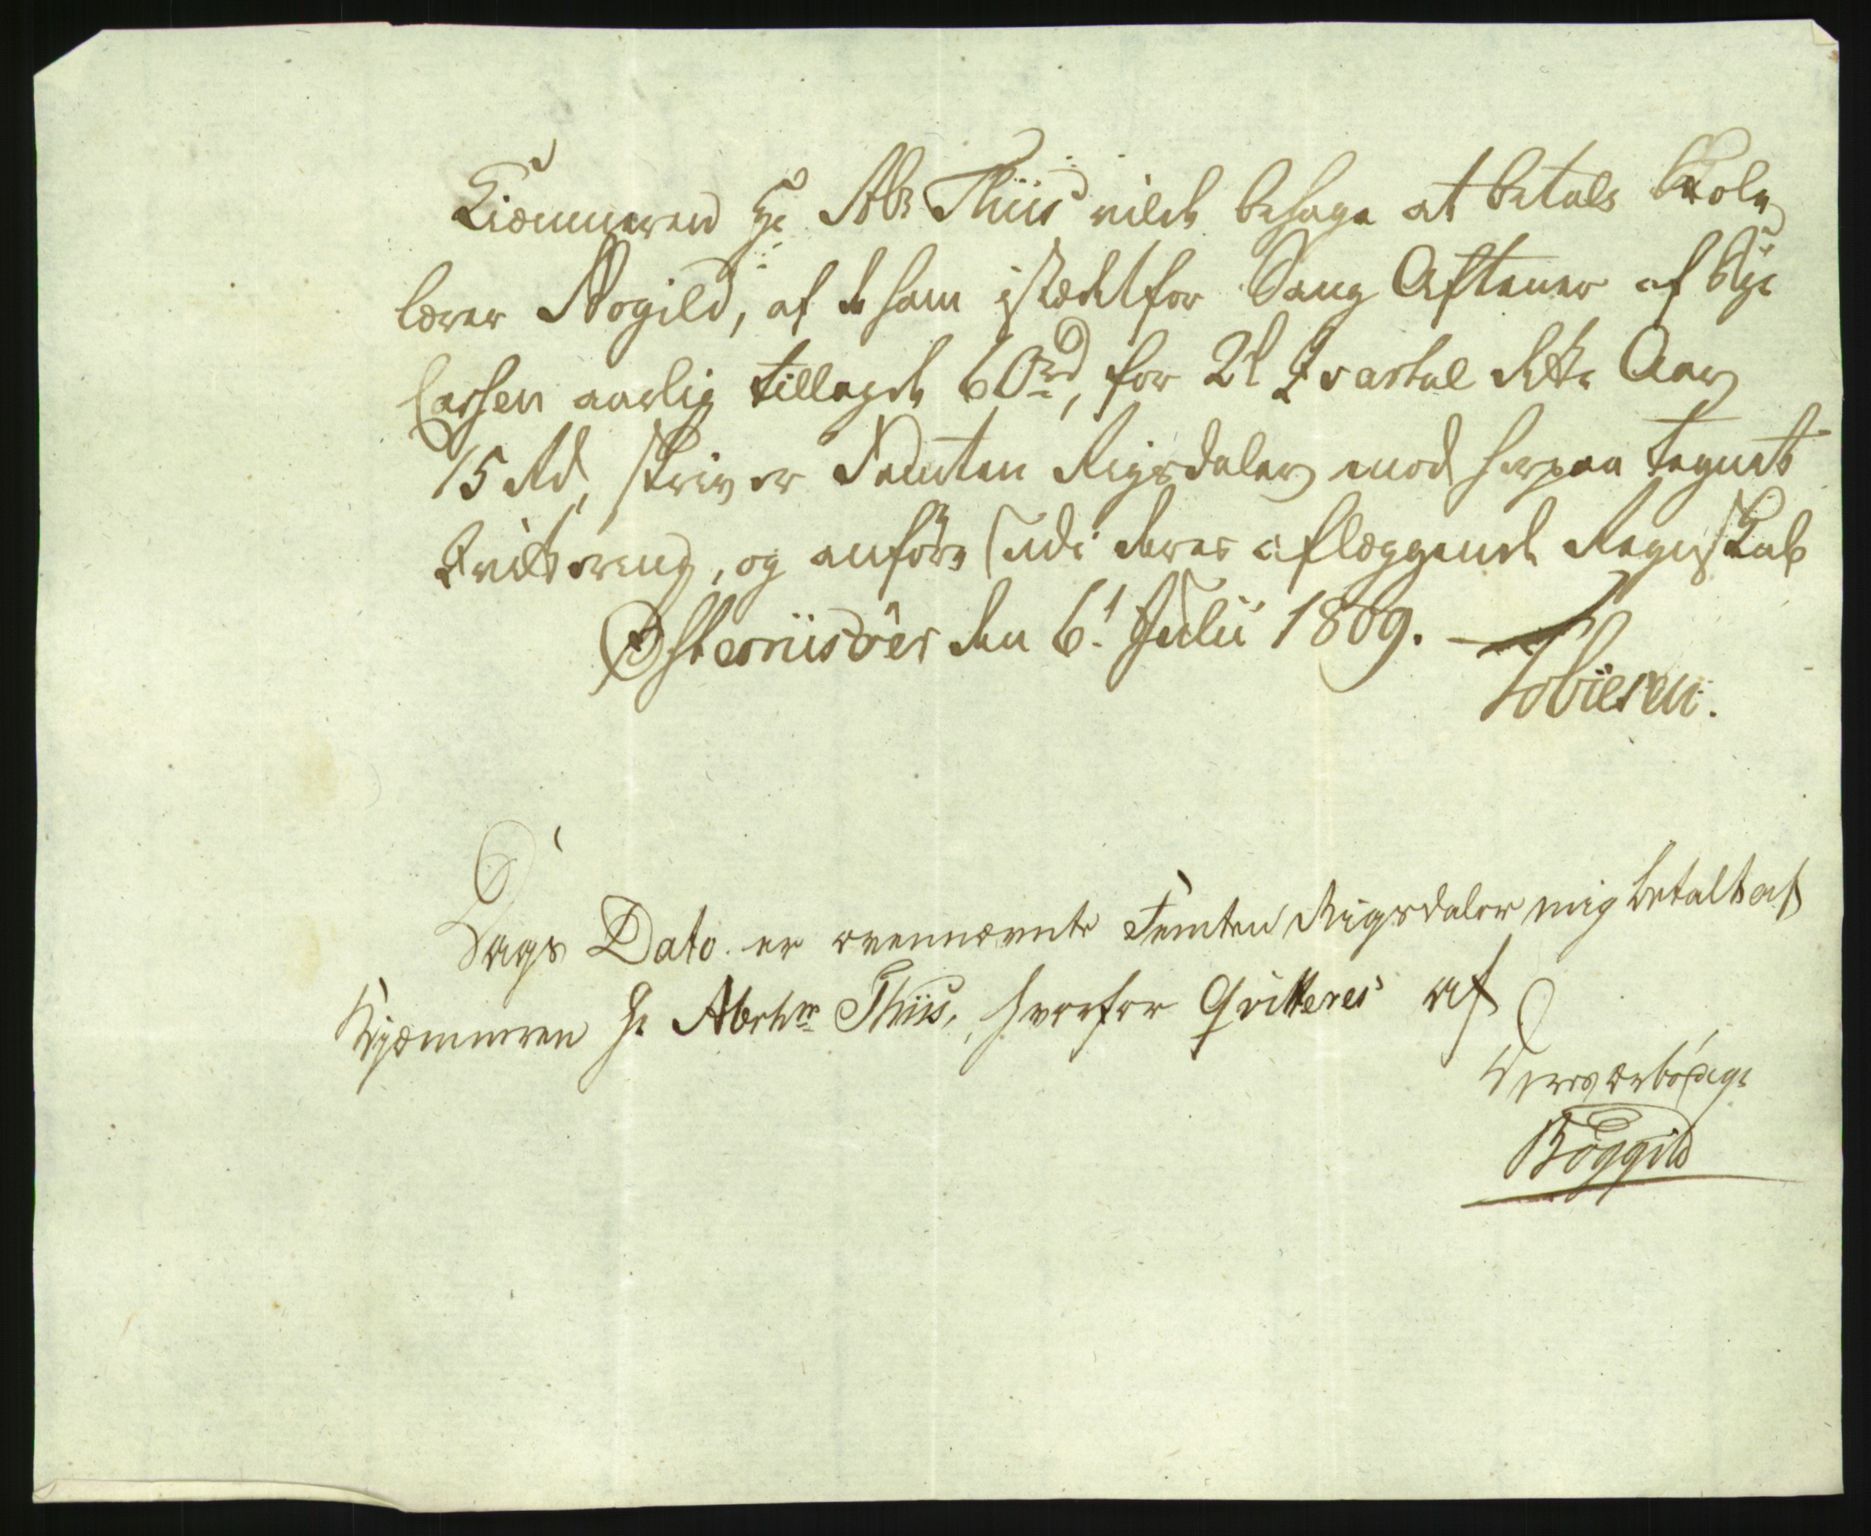 Kiæmneren Hr Abr Thiis vilde behage at betale Skole
lærer Bøgild, af de ham istædetfor Sang Aftener af Bye
Cassen aarlig tillagde 60 rd, for 2d Qvartal dette Aar
15 Rd, skriver Femten Rigsdaler mod herpaa tegnet
Qvittering, og anføre udi deres aflæggende Regnskab
Østerriisöer den 6t Julii 1809.
Tobiesen.
Dags Dato er ovennævnte Femten Rigsdaler mig betalt af
Kjæmneren Hr Abrhm Thiis, hvorfor Qvitteres af
Deres ærbødige
Bøggild